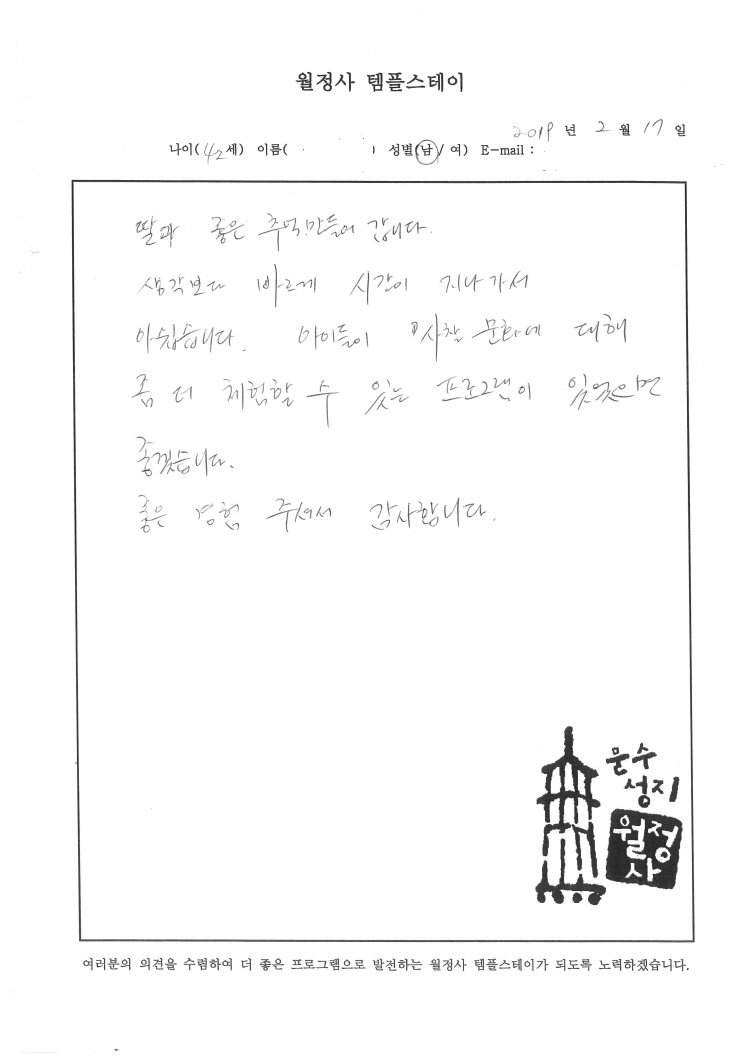 월정사 템플스테이
2019 년 2 월 17 일
나이( 42 세) 이름( ) 성별(남/ 여) E-mail :
딸과 좋은 추억만들어 갑니다.
생각보다 빠르게 시간이 지나가서
아쉽습니다. 아이들이 사찰 문화에 대해
좀 더 체험할 수 있는 프로그램이 있었으면
좋겠습니다.
좋은 경험 주셔서 감사합니다.
문수
성지
월정
사
여러분의 의견을 수렴하여 더 좋은 프로그램으로 발전하는 월정사 템플스테이가 되도록 노력하겠습니다.